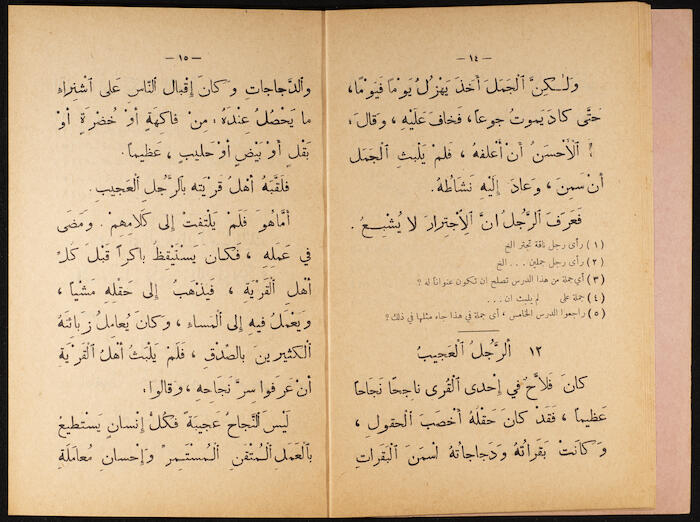 — ١٤ —
وَلٰكِنَّ ٱلْجَمَلَ أَخَذَ يَهْزُلُ يَوْمًا فَيَوْمًا،
حَتَّى كادَ يَموتُ جوعاً، فَخافَ عَلَيْهِ، وَقالَ:
ٱلْأَحْسَنُ أَنْ أَعلفه، فَلَمْ يَلْبَثِ ٱلْجَمَل
أَنْ سَمِنَ، وَعادَ إِلَيْهِ نَشاطُهُ.
فَعَرَفَ ٱلرَّجُلُ انَّ ٱلِٱجْتِرارَ لا يُشْبِعُ.
(١) رأى رجل ناقة تجتر الخ
(٢) رأى رجل جملين . . . الخ
(٣) أي جملة من هذا الدرس تصلح ان تكون عنواناً له ؟
(٤) جملة على لم يلبث ان . . .
(٥) راجعوا الدرس الخامس، أي جملة في هذا جاء مثلها في ذلك ؟
١٢ اَلرَّجُلُ ٱلْعَجيبُ
كانَ فَلاَّحٌ في إِحْدى ٱلْقُرى ناجِحًا نَجَاحًا
عَظيماً، فَقَدْ كانَ حَقْلُهُ أَخْصَبَ ٱلْحقولِ،
وَكانَتْ بَقَراتُهُ وَدَجاجاتُهُ اسْمَنَ ٱلْبَقَراتِ
— ١٥ —
وٱلدَّجاجاتِ وَكانَ إِقْبالُ ٱلنَّاسِ عَلى ٱشْتِراءِ
ما يَحْصُلُ عِنْدَهُ: مِنْ فاكِهَةٍ أَوْ خُضْرَةٍ أَوْ
بَقْلٍ أَوْ بَيْضٍ أَوْ حَليبٍ، عَظيماً.
فَلَقَّبَهُ أَهْلُ قَرْيَتِه بِٱلرَّجُلِ ٱلْعَجيبِ.
أَمَّا هُوَ فَلَمْ يَلْتَفِتْ إِلى كَلامِهِمْ. وَمَضى
في عَمَلِهِ، فَكانَ يَسْتَيْقِظُ باكراً قَبْلَ كلِّ
أَهْلِ ٱلْقَرْيَةِ، فَيَذْهَبُ إِلى حَقْلِهِ مَشْياً،
وَيَعْمَلُ فيهِ إِلى ٱلْمَساءِ، وَكانَ يُعامِلُ زَبائِنَهُ
ٱلْكَثيرينَ بِالصِّدْقِ، فَلَمْ يَلْبَثْ أَهْلُ ٱلْقَرْيَةِ
أَنْ عَرَفوا سِرَّ نَجاحِهِ، وَقالوا:
لَيْسَ ٱلنَّجاحُ عَجيبَةً فَكُلُّ إِنْسانٍ يَسْتَطيعُ
بِٱلْعَمَلِ ٱلْمُتْقَنِ ٱلْمُسْتَمِرِّ وَإِحْسانِ مُعامَلَةِ